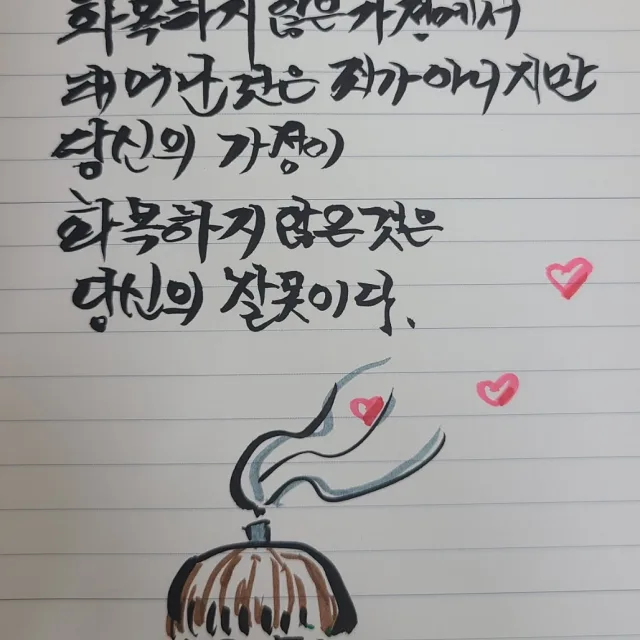 화목하지 않은 가정에서
태어난 것은 죄가 아니지만
당신의 가정이
화목하지 않은 것은
당신의 잘못이다.